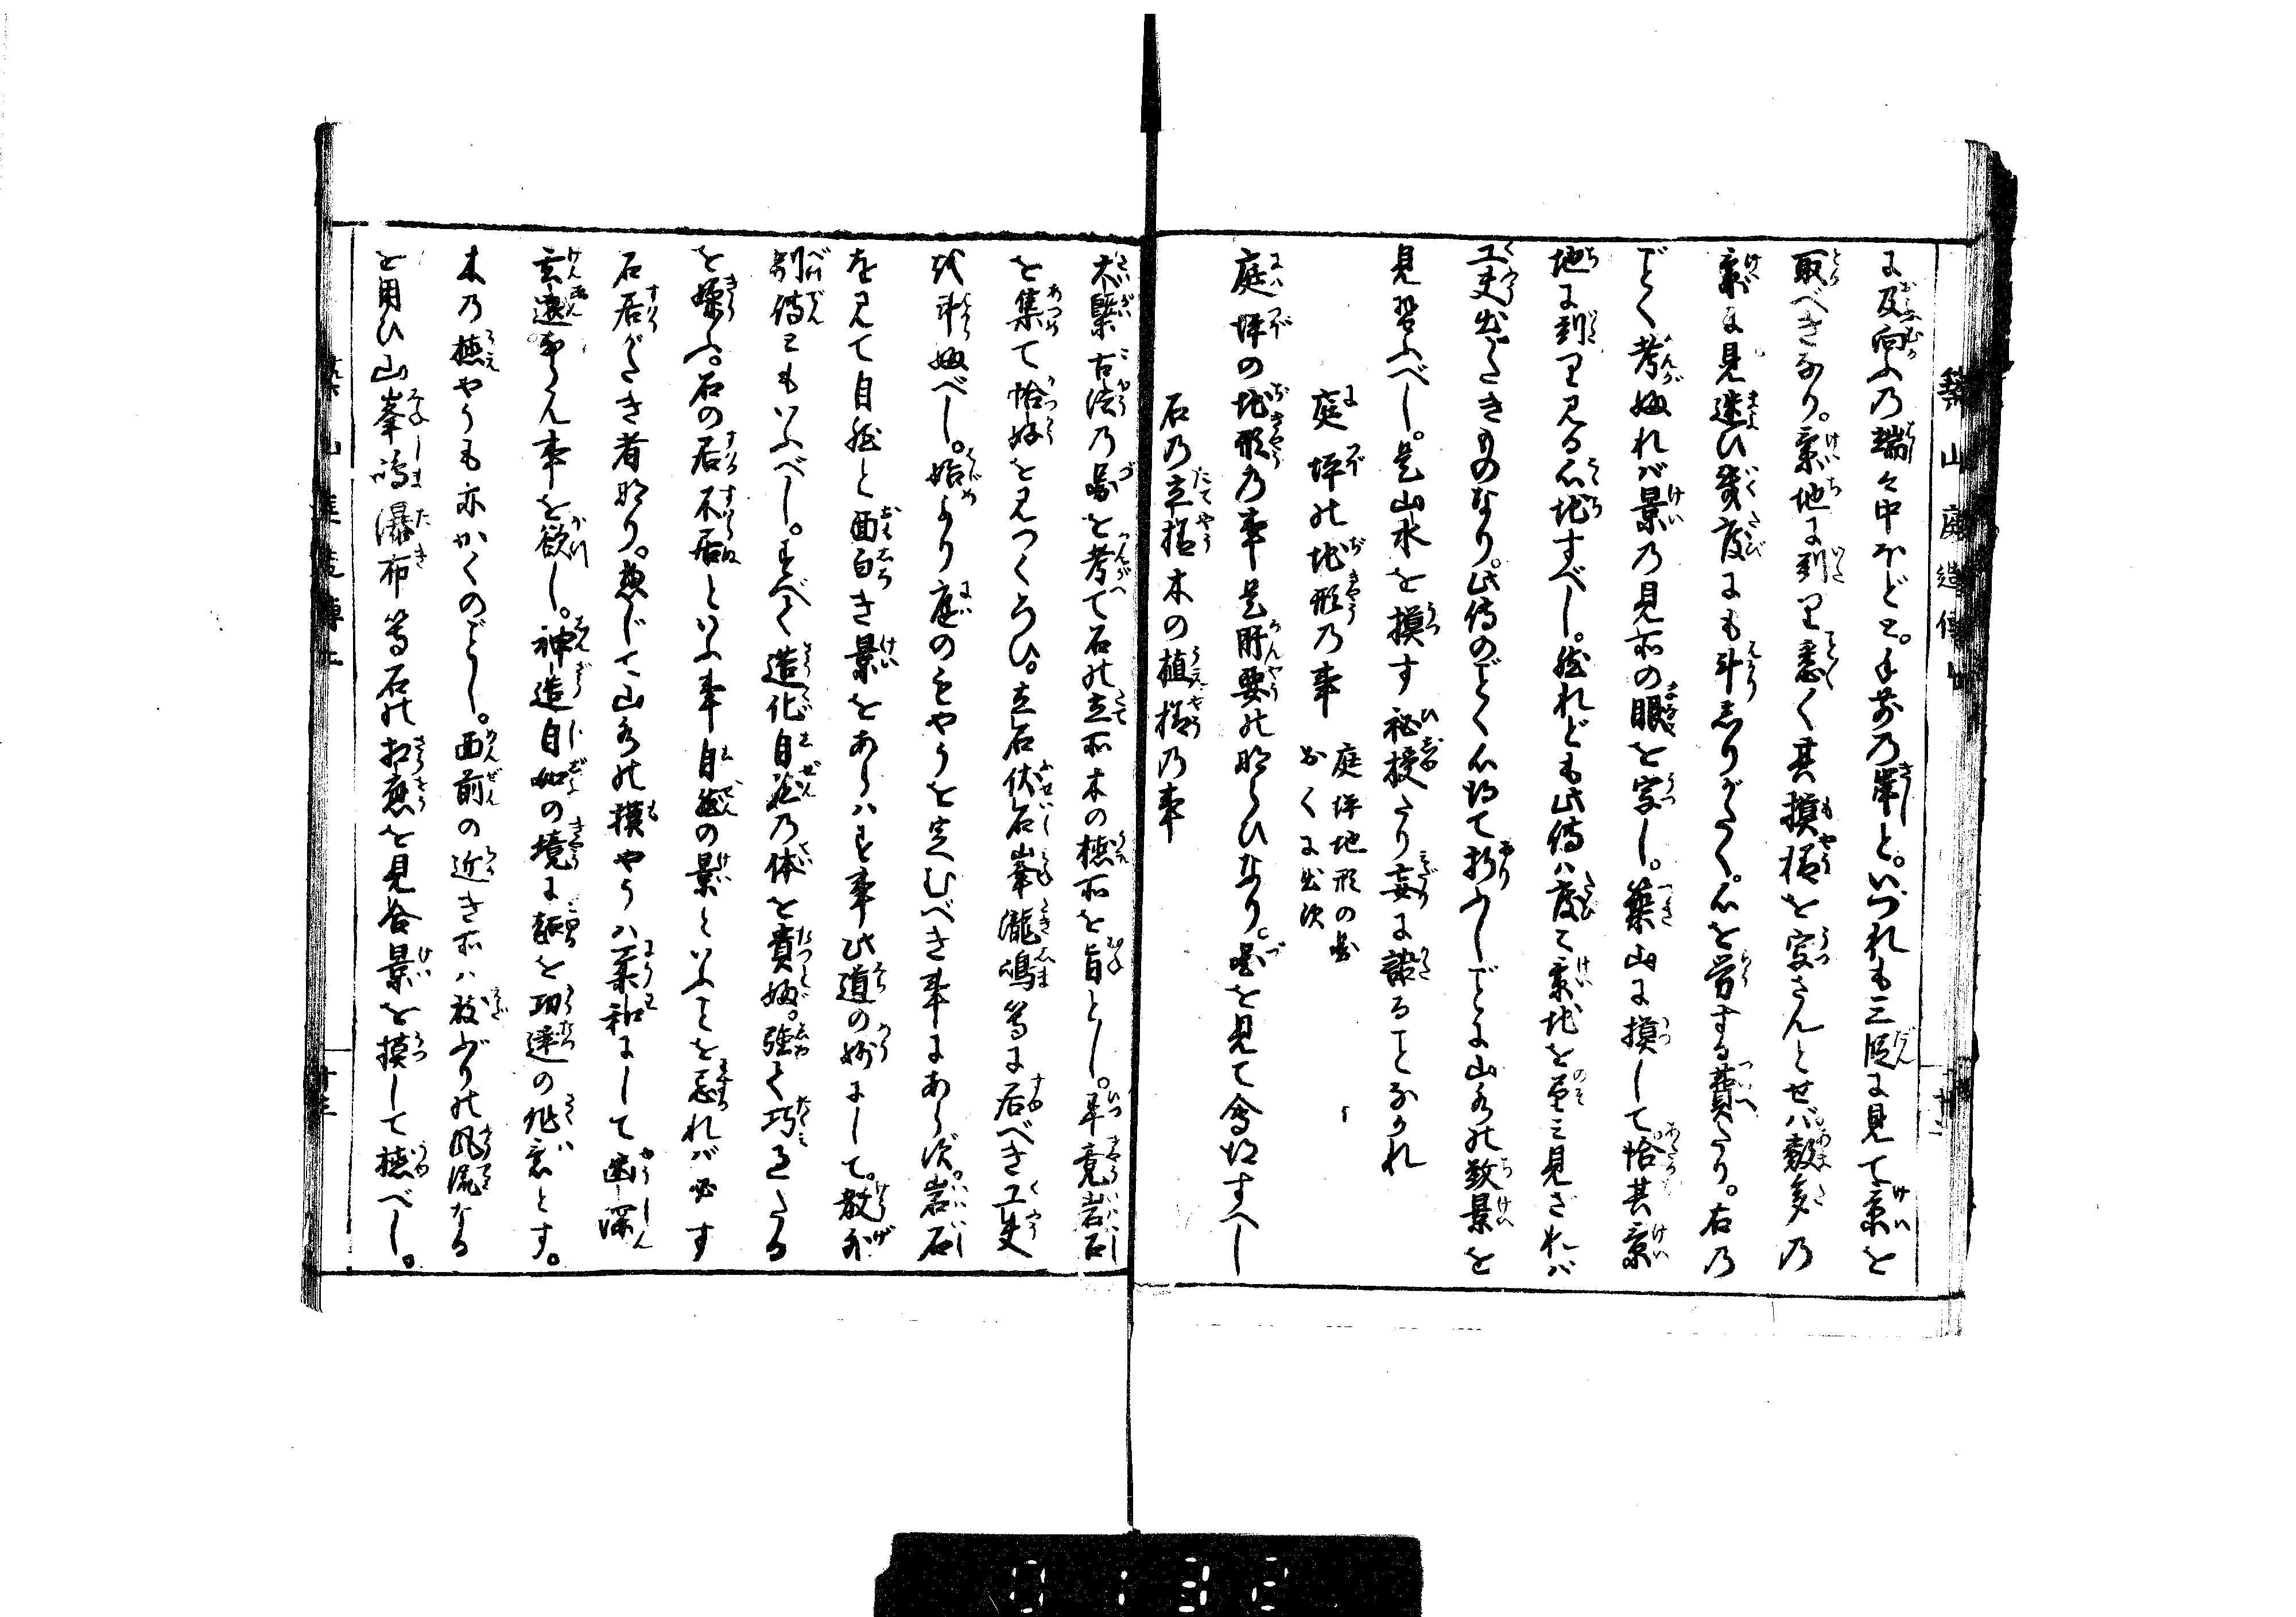 築山庭造傳上
に及向ふの端と中ほどと。手前の岸と。いづれも三段に見て景を
取べきなり。景地に到りて悉く其摸様を写さんとせバ。数多の
景に見迷ひ幾度にも斗よりがたく。心を労する費たり。右の
ごとく考ぬれバ景の見所の眼を写し。築山に摸して恰其景
地に到りて見る心地すべし。然れども此傳ハ度々景地を望ミ見ざれバ
工夫出がたきものなり。此傳のごとく心得て折ふしごとに山水の致景を
見習ふべし。是山水を摸す秘授たり妄に語ることなかれ
庭坪の地形の事
庭坪地形の図
おくに出次
庭坪の地形の事是肝要の所らひなり。図を見て会得すへし
石の立様木の植様の事
大槩古法の図を考て石の立所木の植所を旨とし。畢竟岩石
を集て恰好を見つくろひ。立石伏石山峯瀧嶋等に居べき工夫
以斗ふべし。始より庭のもやうを定むべき事にあらず。岩石
を見て自然と面白き景をあらハす事此道の妙にして。教外
別傳ともいふべし。すべて造化自然の体を貴ぬ。強て巧過たる
を嫌ふ。石の居不居といふ事自然の景といふことを忘れバ必す
石居がたき者なり。惣じて山水の摸やうハ柔和にして幽深
玄遠ならん事を欲し。神造自如の境に至を功達の作意とす。
木の植やうも亦かくのごとし。面前の近き所ハ枝ぶりの風流なる
を用ひ山峯嶋瀑布等石の相應を見合景を摸して植べし。
築山庭造傳上
十三